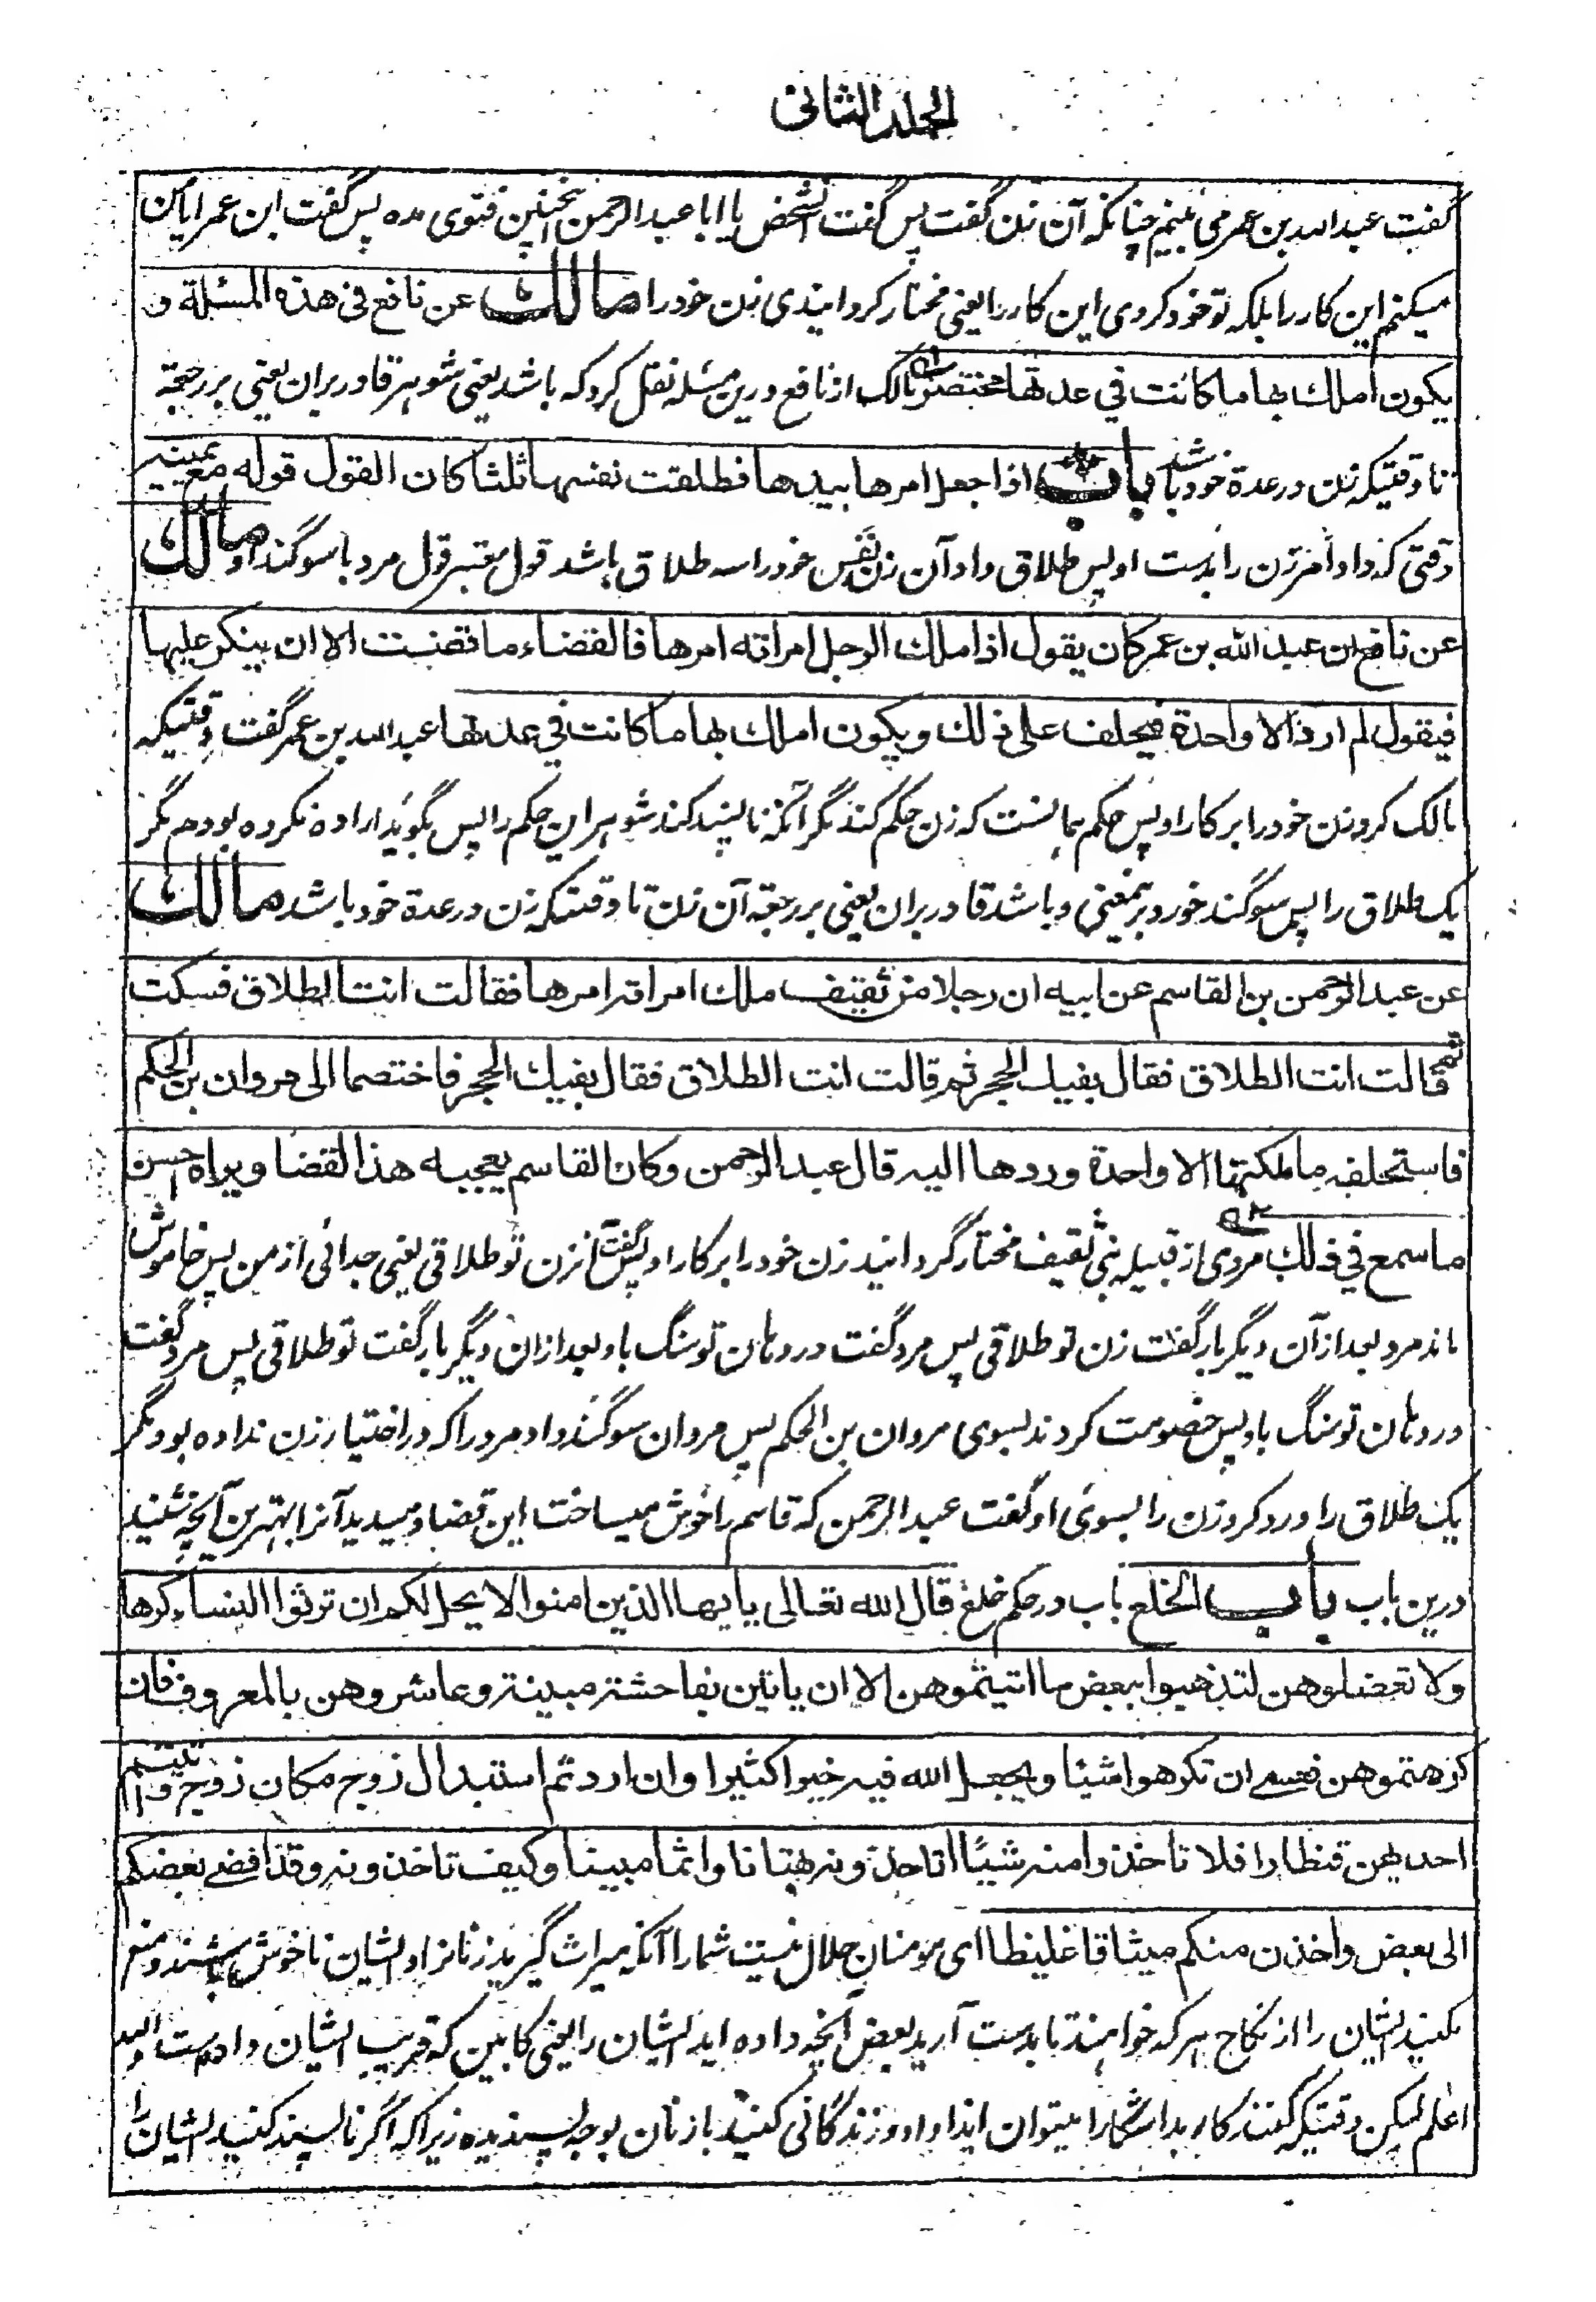 الجلد الثانی
گفت عبد الله بن عمر می بینم چنانکه آن زن گفت پس گفت آنشخص یا ابا عبد الرحمن اینچنین فتوی مده پس گفت ابن عمر ایا من
میکنم این کار را بلکه تو خود کردی این کار را یعنی مختار گردانیدی زن خود را مالك عن نافع فی هذه المسئلة و
یکون املك بها ما کانت فی عدتها مختصر مالک از نافع درین مسئله نقل کرد که باشد یعنی شوهر قادر بران یعنی بر رجعة
تا وقتیکه زن در عدة خود باشد باب اذا جعل امرها بیدها فطلقت نفسها ثلثا کان القول قوله مع یمینه
وقتی که داد امر زن را بدست او پس طلاق داد آن زن نفس خود را سه طلاق باشد قول معتبر قول مرد با سوگند او مالك
عن نافع ان عبد الله بن عمر کان یقول اذا ملك الرجل امراته امرها فالقضاء ما قضت الا ان ینکر علیها
فیقول لم ارد الا واحدة فیحلف علی ذلك ویکون املك بها ما کانت فی عدتها عبد الله بن عمر گفت وقتیکه
مالک کرد زن خود را بر کار او پس حکم همانست که زن حکم کند مگر آنکه ناپسند کند شوهر این حکم را پس بگوید اراده نکرده بودم مگر
یک طلاق را پس سوگند خورد برین معنی و باشد قادر بران یعنی بر رجعة آن زن تا وقتیکه زن در عدة خود باشد مالك
عن عبد الرحمن بن القاسم عن ابیه ان رجلا من ثقیف ملك امراته امرها فقالت انت الطلاق فسکت
ثم قالت انت الطلاق فقال بفیك الحجر ثم قالت انت الطلاق فقال بفیك الحجر فاختصما الی مروان بن الحکم
فاستحلفه ما ملکتها الا واحدة وردها الیه قال عبد الرحمن وکان القاسم یعجبه هذا القضا ویراه احسن
ما سمع فی ذلك مردی از قبیله بنی ثقیف مختار گردانید زن خود را بر کار او پس گفت آنزن تو طلاقی یعنی جدائی از من پس خاموش
ماند مرد بعد از آن دیگر بار گفت زن تو طلاقی پس مرد گفت در دهان تو سنگ باد بعد ازان دیگر بار گفت تو طلاقی پس مرد گفت
در دهان تو سنگ باد پس خصومت کردند بسوی مروان بن الحکم پس مروان سوگند داد مرد را که در اختیار زن نداده بود مگر
یک طلاق را ورد کرد زن را بسوی او گفت عبد الرحمن که قاسم را خوش میساخت این قضا و میدید آنرا بهترین آنچه شنید
درین باب باب الخلع باب در حکم خلع قال الله تعالی یایها الذین امنوا لا یحل لکم ان ترثوا النساء کرها
ولا تعضلوهن لتذهبوا ببعض ما اتیتموهن الا ان یاتین بفاحشة مبینة وعاشروهن بالمعروف فان
کرهتموهن فعسی ان تکرهوا شیئا ویجعل الله فیه خیرا کثیرا وان اردتم استبدال زوج مکان زوج واتیتم
احدیهن قنطارا فلا تاخذوا منه شیئًا اتاخذونه بهتانا واثما مبینا وکیف تاخذونه وقد افضی بعضکم
الی بعض واخذن منکم میثاقا غلیظا ای مومنان حلال نیست شما را آنکه میراث گیرید زنانرا و ایشان ناخوش باشند و منع
نکنید ایشان را از نکاح هر که خواهند تا بدست آرید بعض آنچه داده اید ایشان را یعنی کابین که قریب ایشان داده است
اعلم لیکن وقتیکه کنند کار بد آشکارا میتوان ایذا داد و زندگانی کنید با زنان بوجه پسندیده زیرا که اگر ناپسند کنید ایشان را